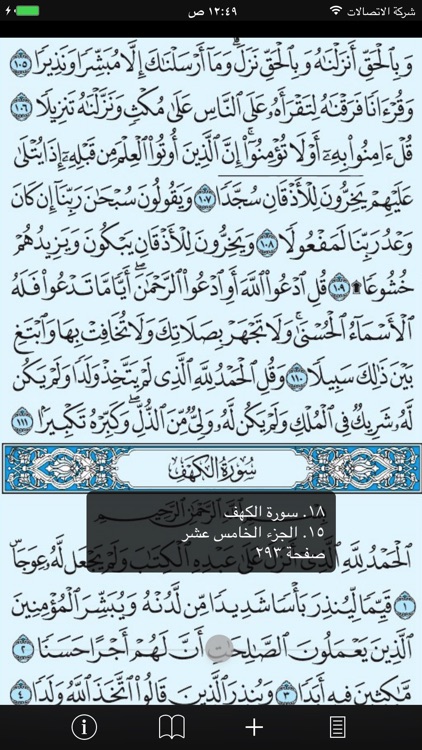 شركة الاتصالات ١٢:٤٩ ص
وَبِالْحَقِّ أَنزَلْنَاهُ وَبِالْحَقِّ نَزَلَ ۗ وَمَا أَرْسَلْنَاكَ إِلَّا مُبَشِّرًا وَنَذِيرًا ١٠٥
وَقُرْءَانًا فَرَقْنَاهُ لِتَقْرَأَهُ عَلَى النَّاسِ عَلَىٰ مُكْثٍ وَنَزَّلْنَاهُ تَنزِيلًا ١٠٦
قُلْ ءَامِنُوا بِهِ أَوْ لَا تُؤْمِنُوا ۚ إِنَّ الَّذِينَ أُوتُوا الْعِلْمَ مِن قَبْلِهِ إِذَا يُتْلَىٰ
عَلَيْهِمْ يَخِرُّونَ لِلْأَذْقَانِ سُجَّدًا ١٠٧ وَيَقُولُونَ سُبْحَانَ رَبِّنَا إِن كَانَ
وَعْدُ رَبِّنَا لَمَفْعُولًا ١٠٨ وَيَخِرُّونَ لِلْأَذْقَانِ يَبْكُونَ وَيَزِيدُهُمْ
خُشُوعًا ۩ ١٠٩ قُلِ ادْعُوا اللَّهَ أَوِ ادْعُوا الرَّحْمَٰنَ ۖ أَيًّا مَّا تَدْعُوا فَلَهُ
الْأَسْمَاءُ الْحُسْنَىٰ ۚ وَلَا تَجْهَرْ بِصَلَاتِكَ وَلَا تُخَافِتْ بِهَا وَابْتَغِ
بَيْنَ ذَٰلِكَ سَبِيلًا ١١٠ وَقُلِ الْحَمْدُ لِلَّهِ الَّذِي لَمْ يَتَّخِذْ وَلَدًا وَلَمْ يَكُن
لَّهُ شَرِيكٌ فِي الْمُلْكِ وَلَمْ يَكُن لَّهُ وَلِيٌّ مِّنَ الذُّلِّ ۖ وَكَبِّرْهُ تَكْبِيرًا ١١١
سُورَةُ الْكَهْفِ
اللَّهِ الرَّحْمَٰنِ الرَّحِيمِ
١٨. سورة الكهف
١٥. الجزء الخامس عشر
صفحة ٢٩٣
الْحَمْدُ لِلَّهِ الَّذِي أَنزَلَ عَلَىٰ عَبْدِهِ الْكِتَابَ وَلَمْ يَجْعَل لَّهُ عِوَجًا
١ قَيِّمًا لِّيُنذِرَ بَأْسًا شَدِيدًا مِّن لَّدُنْهُ وَيُبَشِّرَ الْمُؤْمِنِينَ
الَّذِينَ يَعْمَلُونَ الصَّالِحَاتِ أَنَّ لَهُمْ أَجْرًا حَسَنًا ٢
مَّاكِثِينَ فِيهِ أَبَدًا ٣ وَيُنذِرَ الَّذِينَ قَالُوا اتَّخَذَ اللَّهُ وَلَدًا ٤